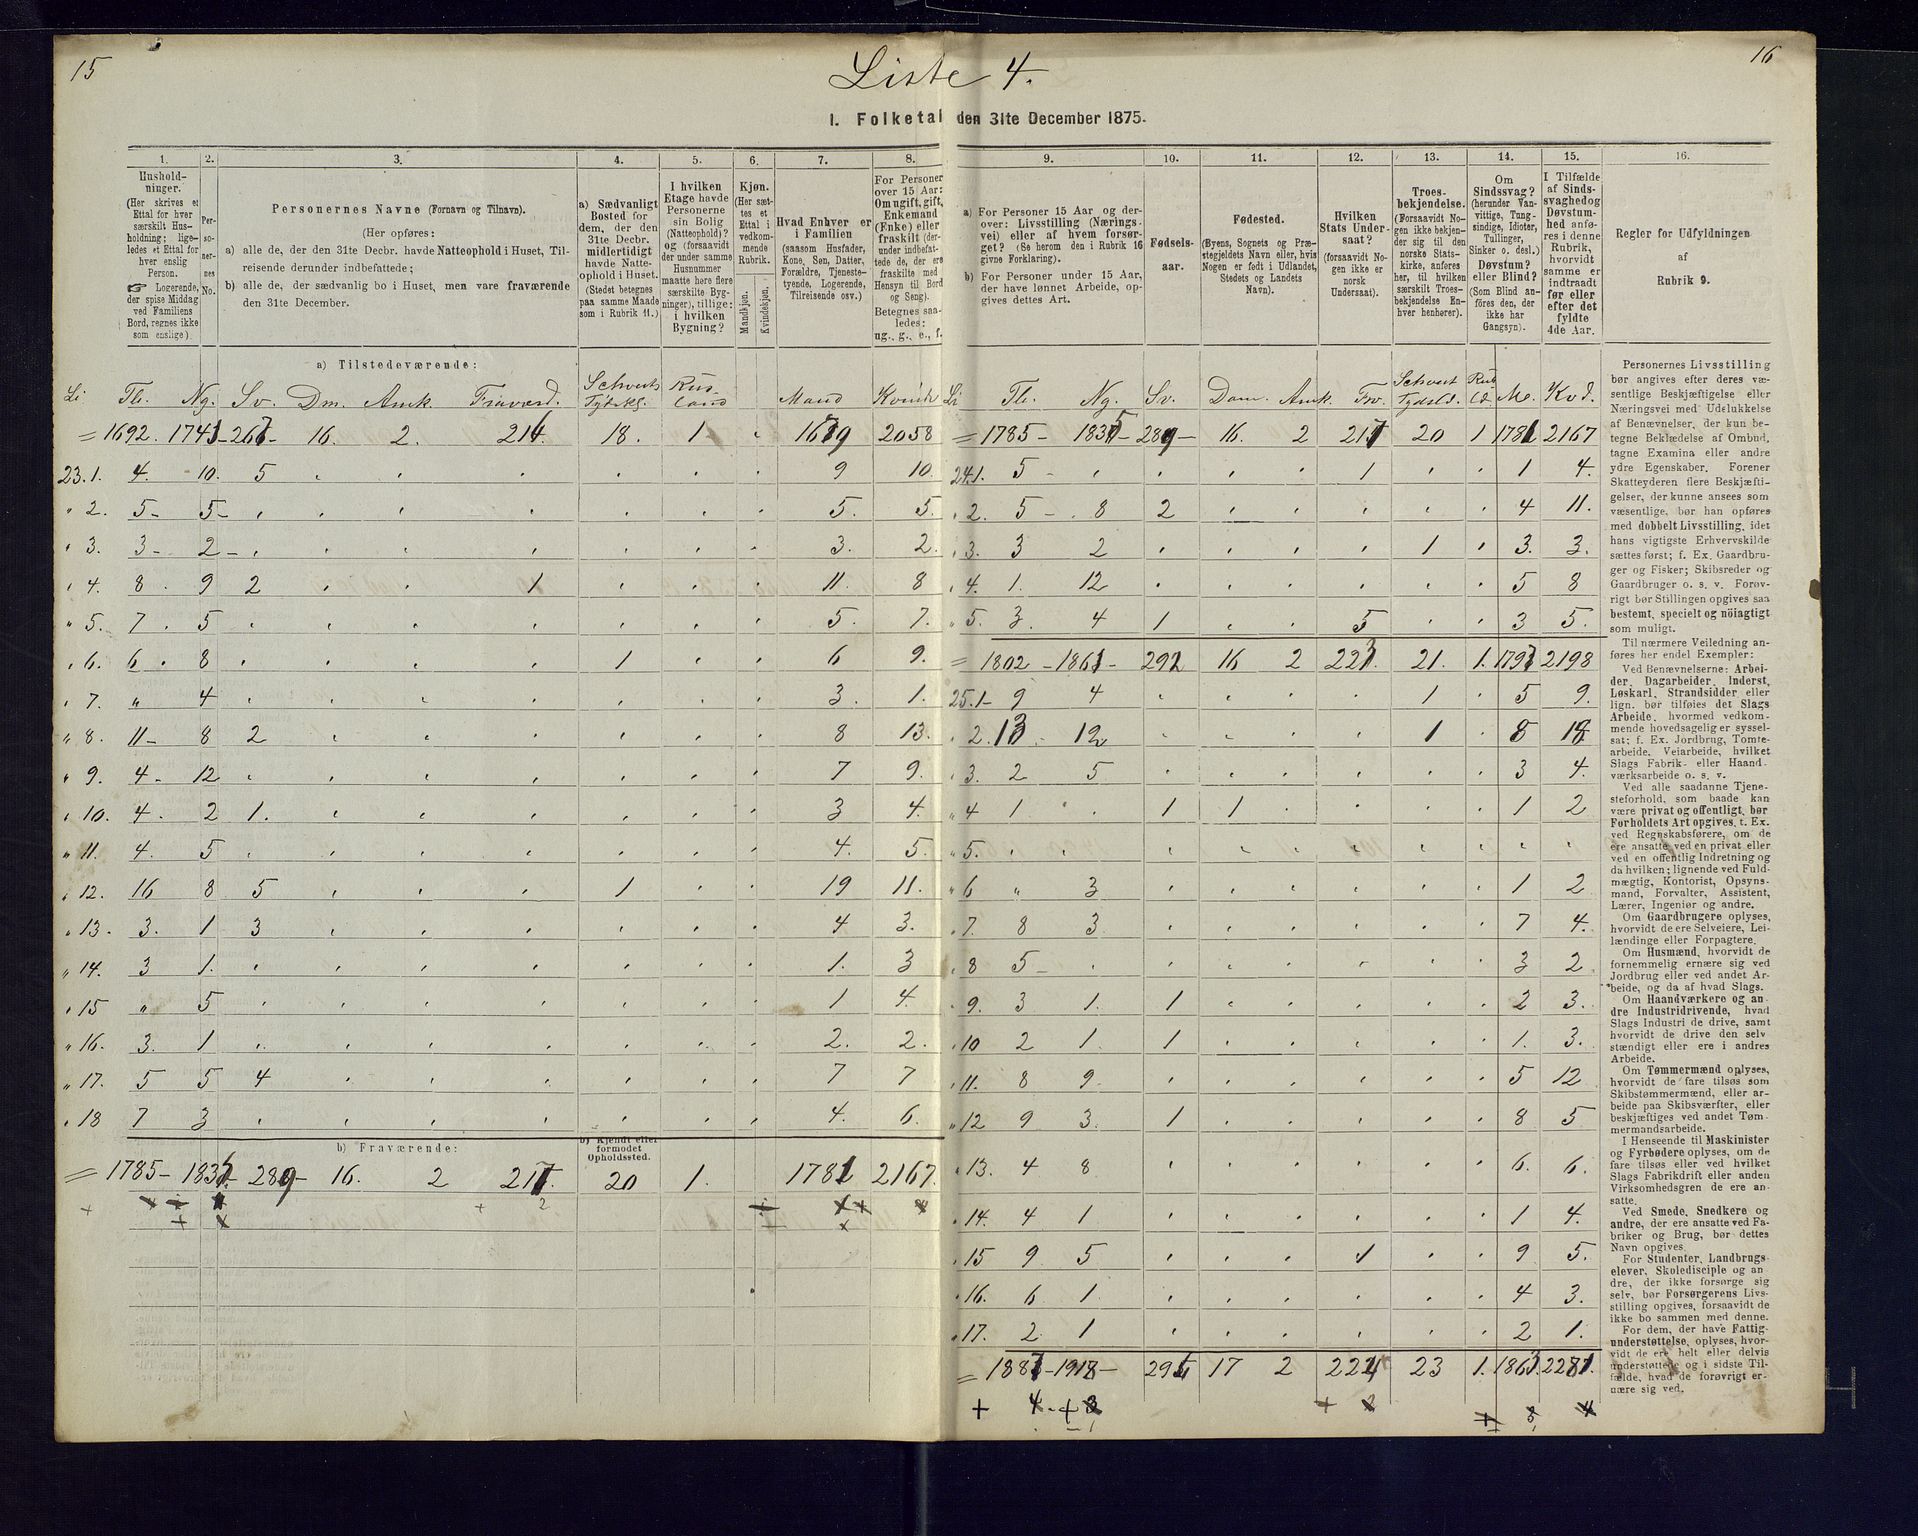 15
Liste 4.
16
I. Folketal den 31te December 1875.
1. 2. 3. 4. 5. 6. 7. 8. 9. 10. 11. 12. 13. 14. 15. 16.
Hushold-
ninger.
(Her skrives et
Ettal for hver
særskilt Hus-
holdning; lige-
ledes et Ettal for
hver enslig
Person.
☞ Logerende,
der spise Middag
ved Familiens
Bord, regnes ikke
som enslige).
Per-
so-
ner-
nes
No.
Personernes Navne (Fornavn og Tilnavn).
(Her opføres:
a) alle de, der den 31te Decbr. havde Natteophold i Huset, Til-
reisende derunder indbefattede;
b) alle de, der sædvanlig bo i Huset, men vare fraværende
den 31te December.
a) Sædvanligt
Bosted for
dem, der den
31te Decbr.
midlertidigt
havde Natte-
ophold i Huset.
(Stedet betegnes
paa samme Maade
som i Rubrik 11.)
I hvilken
Etage havde
Personerne
sin Bolig
(Natteophold)?
og (forsaavidt
der under samme
Husnummer
maatte høre flere
særskilte Byg-
ninger), tillige:
i hvilken
Bygning?
Kjøn.
(Her sæt-
tes et
Ettal i
vedkom-
mende
Rubrik.
Mandkjøn.
Kvindekjøn.
Hvad Enhver er
i Familien
(saasom Husfader,
Kone, Søn, Datter,
Forældre, Tjeneste-
tyende, Logerende,
Tilreisende osv.)
For Personer
over 15 Aar:
Om ugift, gift,
Enkemand
(Enke) eller
fraskilt (der-
under indbefat-
tede de, der ere
fraskilte med
Hensyn til Bord
og Seng).
Betegnes saa-
ledes:
ug., g., e., f.
a) For Personer 15 Aar og der-
over: Livsstilling (Nærings-
vei) eller af hvem forsør-
get? (Se herom den i Rubrik 16
givne Forklaring).
b) For Personer under 15 Aar,
der have lønnet Arbeide, op-
gives dettes Art.
Fødsels-
aar.
Fødested.
(Byens, Sognets og Præ-
stegjeldets Navn eller, hvis
Nogen er født i Udlandet,
Stedets og Landets
Navn).
Hvilken
Stats Under-
saat?
(forsaavidt No-
gen ikke er
norsk
Undersaat).
Troes-
bekjendelse.
(Forsaavidt No-
gen ikke bekjen-
der sig til den
norske Stats-
kirke, anføres
her, til hvilken
særskilt Troes-
bekjendelse En-
hver henhører).
Om
Sindssvag?
(herunder Van-
vittige, Tung-
sindige, Idioter,
Tullinger,
Sinker o. desl.)
Døvstum?
eller Blind?
(Som Blind an-
føres den, der
ikke har
Gangsyn).
I Tilfælde
af Sinds-
svaghed og
Døvstum-
hed anfø-
res i denne
Rubrik,
hvorvidt
samme er
indtraadt
før eller
efter det
fyldte
4de Aar.
Regler for Udfyldningen
af
Rubrik 9.
a) Tilstedeværende:
Li. Tlr. Ng. Sv. Dm. Amk. Fraværd. Schveits Tydskl. Rus-land Mand Kvinde
= 1692. 16. 2. 18. 1 2058
23.1. 4. 10. 5 9 10.
" 2. 5 5 5. 5.
" 3. 3 2 3. 2.
" 4. 8 9 2 1 11. 8
" 5. 7. 5 5. 7.
" 6. 6. 8 1 6 9.
" 7. " 4 3. 1.
" 8. 11 8 2 8 13.
" 9. 4 12 7 9.
" 10. 4. 2 1. 3 4.
" 11. 4. 5 4. 5.
" 12. 16 8 5 1 19 11.
" 13. 3. 1 3 4 3.
" 14. 3 1. 1. 3
" 15 " 5 1 4.
" 16. 3. 1 2. 2.
" 17. 5 5 4 7 7
" 18 7 3 4. 6.
b) Fraværende:
b) Kjendt eller
formodet
Opholdssted.
= 1785 16. 2 20 1. 2167.
Li Tlr. Ng. Sv. Dam. Amk. Fv. Schveit Tydskl. M. Kvd.
= 1785 16. 2 20 1 2167
24.1. 5 1 1 4.
" 2. 5 8 2 4 11.
" 3. 3 2 1 3. 3.
" 4. 1. 12 5 8
" 5. 3. 4 1 5 3 5.
= 1802 16 2 21. 1. 2198
25.1 9 4 1 5 9.
" 2. 13 12 1 8
" 3. 2 5 3 4.
" 4 1 1 1 1 2
" 5.
" 6 " 3 1 2
" 7. 8 3 7 4.
" 8 5 3 2
" 9. 3 1. 1 2 3.
" 10 2 1. 1 1. 3.
" 11. 8 9 5 12
" 12 9 3. 1 8 5
" 13. 4 8 6. 6.
" 14. 4 1 1 4.
" 15 9 5 1 9 5.
" 16. 6 1. 4 3.
" 17. 2 1 2 1.
= 17 2 23 1.
Personernes Livsstilling
bør angives efter deres væ-
sentlige Beskjæftigelse eller
Næringsvei med Udelukkelse
af Benævnelser, der kun be-
tegne Beklædelse af Ombud,
tagne Examina eller andre
ydre Egenskaber. Forener
Skatteyderen flere Beskjæfti-
gelser, der kunne ansees som
væsentlige, bør han opføres
med dobbelt Livsstilling, idet
hans vigtigste Erhvervskilde
sættes først; f. Ex. Gaardbru-
ger og Fisker; Skibsreder og
Gaardbruger o. s. v. Forøv-
rigt bør Stillingen opgives saa
bestemt, specielt og nöiagtigt
som muligt.
Til nærmere Veiledning an-
føres her endel Exempler:
Ved Benævnelserne: Arbei-
der, Dagarbeider, Inderst,
Løskarl, Strandsidder eller
lign. bør tilføies det Slags
Arbeide, hvormed vedkom-
mende hovedsagelig er syssel-
sat; f. Ex. Jordbrug, Tomte-
arbeide, Veiarbeide, hvilket
Slags Fabrik- eller Haand-
værksarbeide o. s. v.
Ved alle saadanne Tjene-
steforhold, som baade kan
være privat og offentligt, bør
Forholdets Art opgives, t. Ex.
ved Regnskabsførere, om de
ere ansatte ved en privat eller
ved en offentlig Indretning og
da hvilken; lignende ved Fuld-
mægtig, Kontorist, Opsyns-
mand, Forvalter, Assistent,
Lærer, Ingeniør og andre.
Om Gaardbrugere oplyses,
hvorvidt de ere Selveiere, Lei-
lændinge eller Forpagtere.
Om Husmænd, hvorvidt de
fornemmelig ernære sig ved
Jordbrug eller ved andet Ar-
beide, og da af hvad Slags.
Om Haandværkere og an-
dre Industridrivende, hvad
Slags Industri de drive, samt
hvorvidt de drive den selv-
stændigt eller ere i andres
Arbeide.
Om Tømmermænd oplyses,
hvorvidt de fare tilsøs som
Skibstømmermænd, eller ar-
beide paa Skibsværfter, eller
beskjæftiges ved andet Tøm-
mermandsarbeide.
I Henseende til Maskinister
og Fyrbødere oplyses, om de
fare tilsøs eller ved hvilket
Slags Fabrikdrift eller anden
Virksomhedsgren de ere an-
satte.
Ved Smede, Snedkere og
andre, der ere ansatte ved Fa-
briker og Brug, bør dettes
Navn opgives.
For Studenter, Landbrugs-
elever, Skoledisciple og an-
dre, der ikke forsørge sig
selv, bør Forsørgerens Livs-
stilling opgives, forsaavidt de
ikke bo sammen med denne.
For dem, der have Fattig-
understøttelse, oplyses, hvor-
vidt de ere helt eller delvis
understøttede og i sidste Til-
fælde, hvad de forøvrigt er-
nære sig ved.